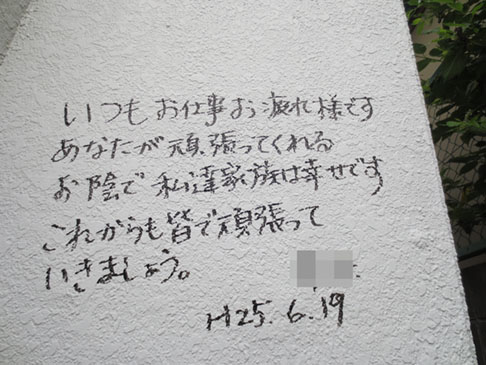 いつもお仕事お疲れ様です
あなたが頑張ってくれる
お陰で私達家族は幸せです
これからも皆で頑張って
いきましょう。
H25.6.19